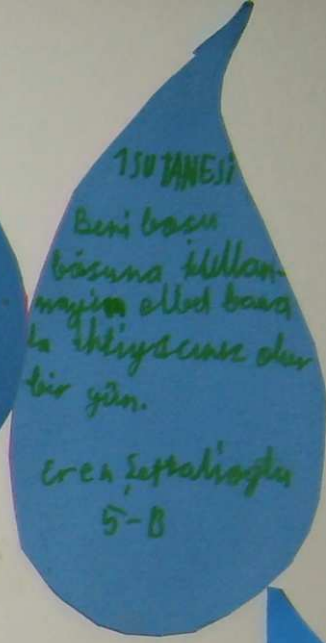 1 SU TANESİ
Beni boşu
boşuna kullan-
mayın elbet bana
da ihtiyacınız olur
bir gün.
Eren
5-B